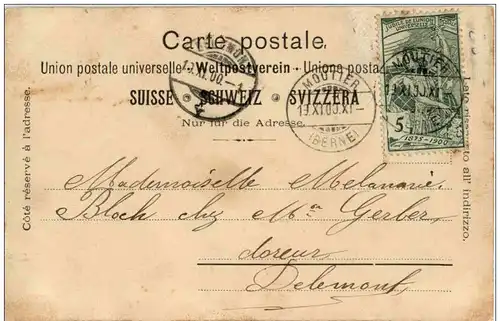 Carte postale.
Union postale universelle. - Weltpostverein. - Unione postale
SUISSE. SCHWEIZ. SVIZZERA
Nur für die Adresse.
Côté réservé à l'adresse.
Lato riservato all' indirizzo.
19.XI.00.
MOUTIER
19.XI.00.XI-
(BERNE)
JUBILÉ DE L'UNION
POSTALE UNIVERSELLE
MOUTIER
19.XI.00.XI
5
1875-1900
Mademoiselle Melanie
Bloch chez Mr. Gerber,
doreur
Delemont,